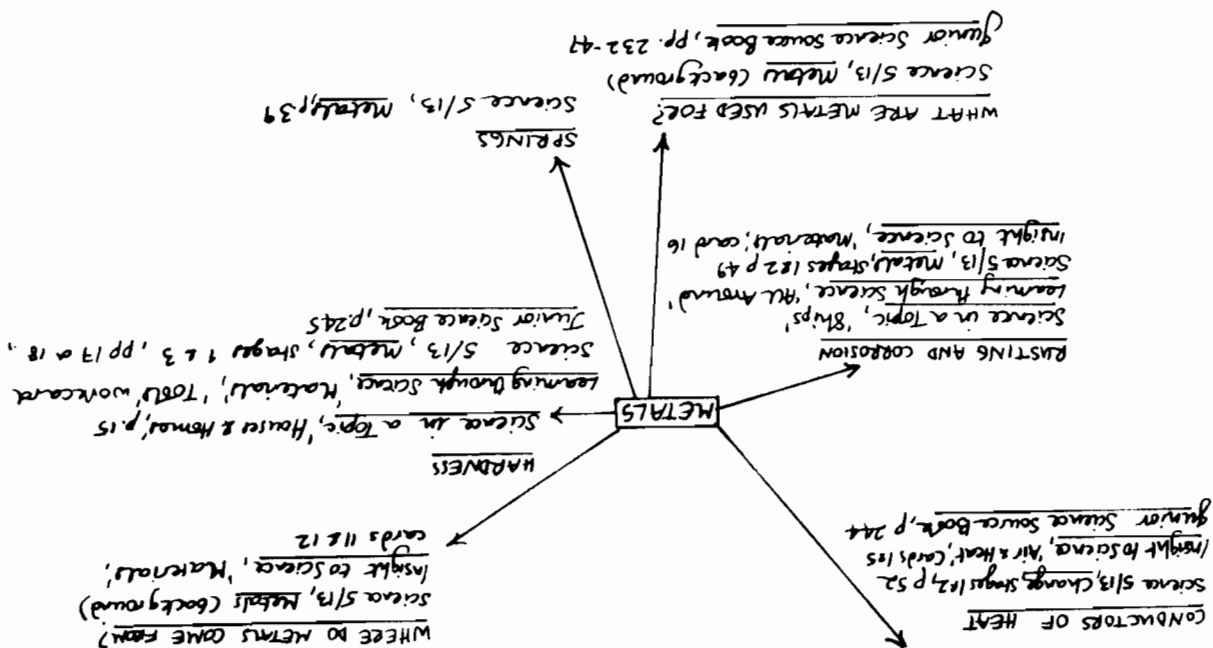 CONDUCTORS OF HEAT
Science 5/13, Change, Stages 1&2, p 52
Insight to Science, 'Air & Heat', Cards 1&5
Junior Science Source Book, p 244
WHERE DO METALS COME FROM?
Science 5/13, Metals (background)
Insight to Science, 'Materials',
cards 11 & 12
HARDNESS
Science in a Topic, 'Houses & Homes', p.15
Learning through Science, 'Materials', 'Tools' workcard
Science 5/13, Metals, Stages 1 & 3, pp 17 or 18,
Junior Science Book, p.245
METALS
RUSTING AND CORROSION
Science in a Topic, 'Ships'
Learning through Science, 'All Around'
Science 5/13, Metals, Stages 1&2 p 49
Insight to Science, 'Materials', card 16
SPRINGS
Science 5/13, Metals, p.39
WHAT ARE METALS USED FOR?
Science 5/13, Metals (background)
Junior Science Source Book, pp. 232-47